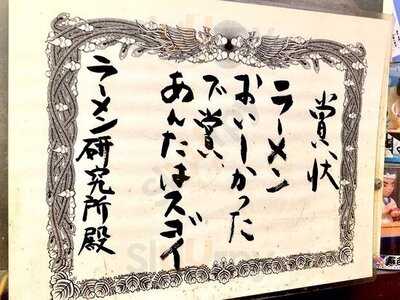 賞状
ラーメン
おいしかった
で賞
あんたはスゴイ
ラーメン研究所殿